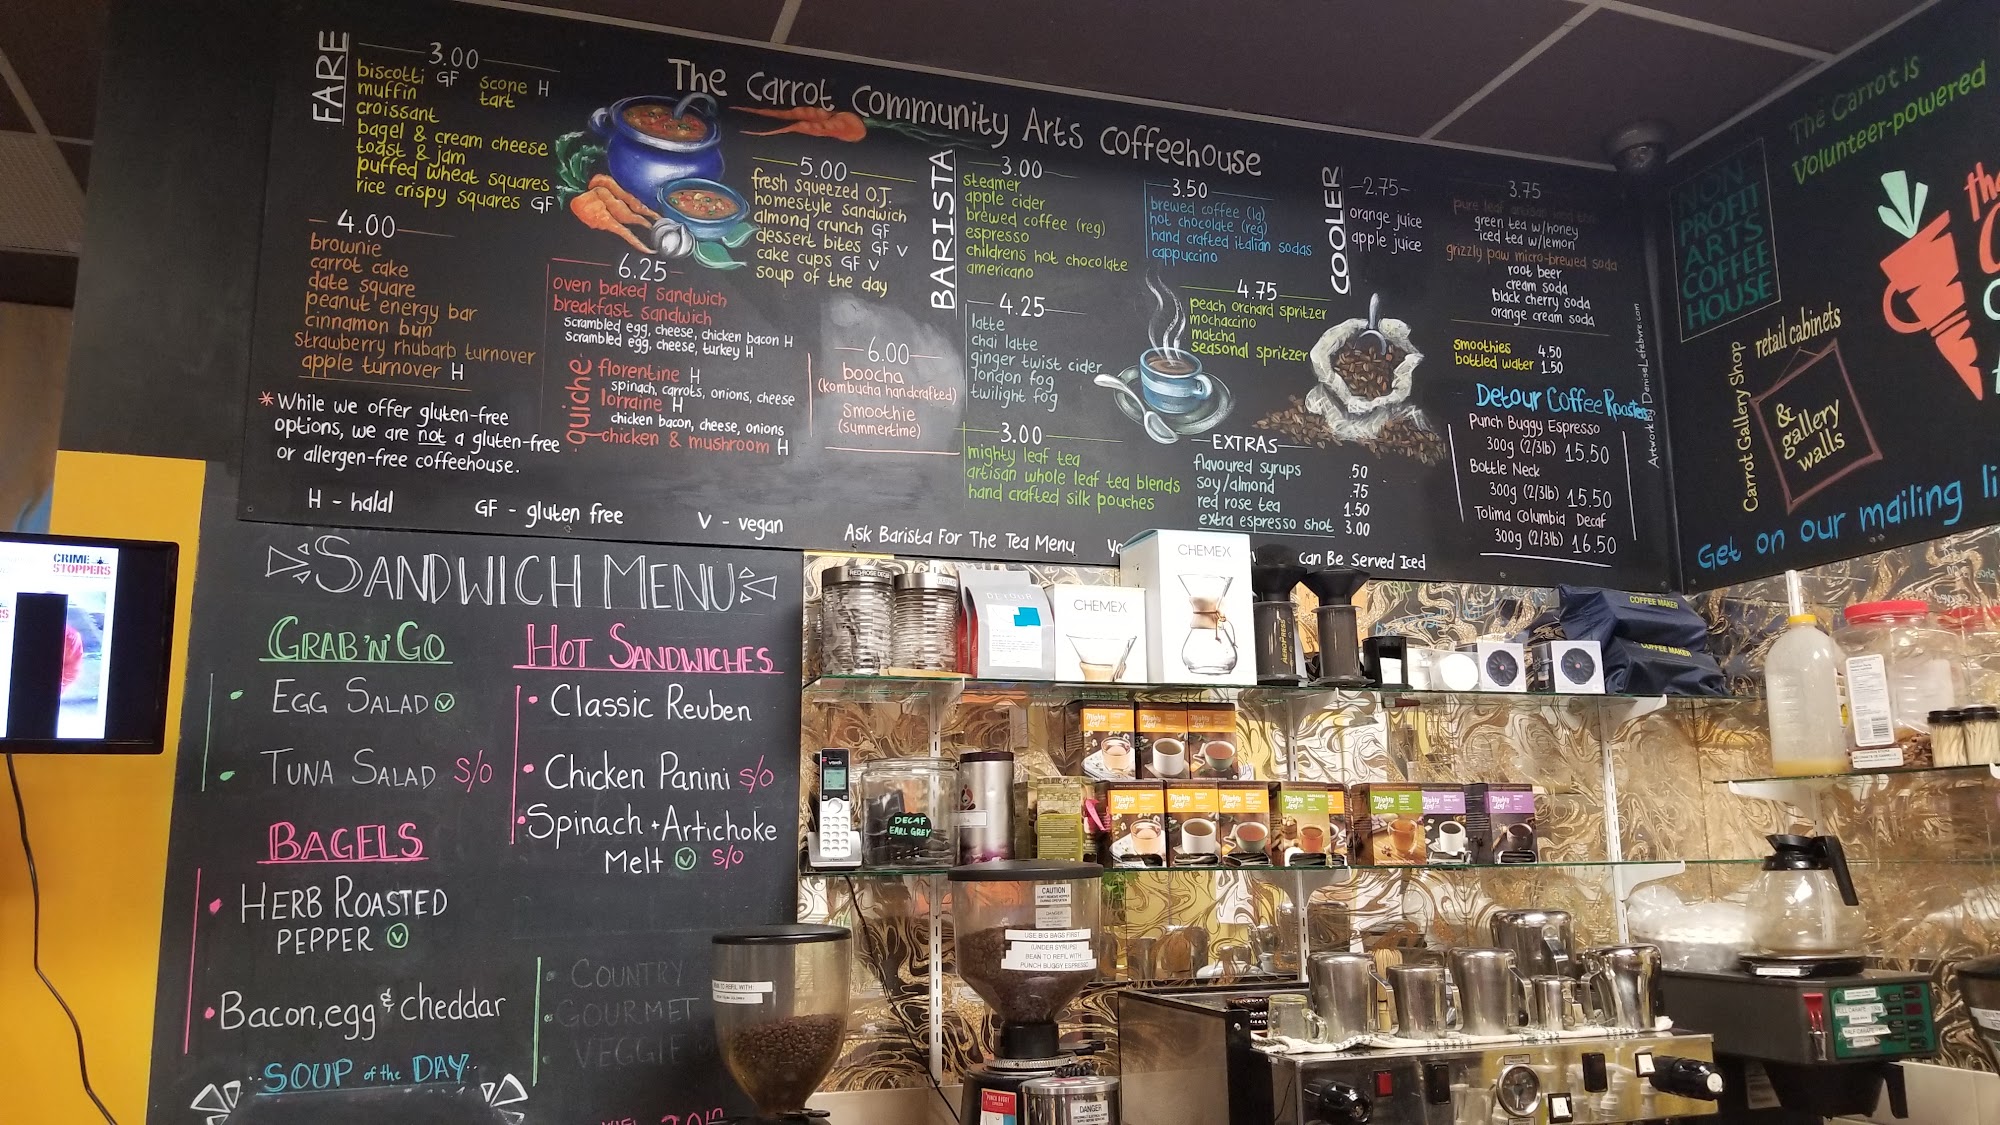 The Carrot Community Arts Coffeehouse
FARE
3.00
biscotti GF scone H
muffin tart
croissant
bagel & cream cheese
toast & jam
puffed wheat squares
rice crispy squares GF
4.00
brownie
carrot cake
date square
peanut energy bar
cinnamon bun
strawberry rhubarb turnover
apple turnover H
* While we offer gluten-free
options, we are not a gluten-free
or allergen-free coffeehouse.
H - halal
GF - gluten free
V - vegan
5.00
fresh squeezed O.J.
homestyle sandwich
almond crunch GF
dessert bites GF V
cake cups GF V
soup of the day
6.25
oven baked sandwich
breakfast sandwich
scrambled egg, cheese, chicken bacon H
scrambled egg, cheese, turkey H
quiche
florentine H
spinach, carrots, onions, cheese
lorraine H
chicken bacon, cheese, onions
chicken & mushroom H
6.00
boocha
(kombucha handcrafted)
smoothie
(summertime)
BARISTA
3.00
steamer
apple cider
brewed coffee (reg)
espresso
childrens hot chocolate
americano
4.25
latte
chai latte
ginger twist cider
london fog
twilight fog
3.00
mighty leaf tea
artisan whole leaf tea blends
hand crafted silk pouches
3.50
brewed coffee (lg)
hot chocolate (reg)
hand crafted italian sodas
cappuccino
4.75
peach orchard spritzer
mochaccino
matcha
seasonal spritzer
EXTRAS
flavoured syrups .50
soy/almond .75
red rose tea 1.50
extra espresso shot 3.00
Ask Barista For The Tea Menu
can Be Served Iced
COOLER
2.75
orange juice
apple juice
3.75
pure leaf
green tea w/honey
iced tea w/lemon
grizzly paw micro-brewed soda
root beer
cream soda
black cherry soda
orange cream soda
smoothies 4.50
bottled water 1.50
Detour Coffee Roasters
Punch Buggy Espresso
300g (2/3lb) 15.50
Bottle Neck
300g (2/3lb) 15.50
Tolima Columbia Decaf
300g (2/3lb) 16.50
Artwork by DeniseLefebvre.com
NON
PROFIT
ARTS
COFFEE
HOUSE
The Carrot is
Volunteer-powered
Carrot Gallery Shop
retail cabinets
& gallery
walls
Get on our mailing li
CRIME
STOPPERS
SANDWICH MENU
GRAB 'N' GO
• EGG SALAD V
• TUNA SALAD S/O
BAGELS
• HERB ROASTED
PEPPER V
• Bacon, egg & cheddar
SOUP of the DAY
HOT SANDWICHES
• Classic Reuben
• Chicken Panini S/O
• Spinach + Artichoke
Melt V S/O
• COUNTRY
• GOURMET
• VEGGIE
RED ROSE DECAF
DETOUR
CHEMEX
CHEMEX
AEROPRESS
COFFEE MAKER
COFFEE MAKER
vtech
DECAF
EARL GREY
Mighty Leaf
Mighty Leaf
Mighty Leaf
Mighty Leaf
Mighty Leaf
Mighty Leaf
CAUTION
DANGER
USE BIG BAGS FIRST
(UNDER SYRUPS)
BEAN TO REFIL WITH:
PUNCH BUGGY ESPRESSO
BEAN TO REFIL WITH:
PUNCH BUGGY
DANGER